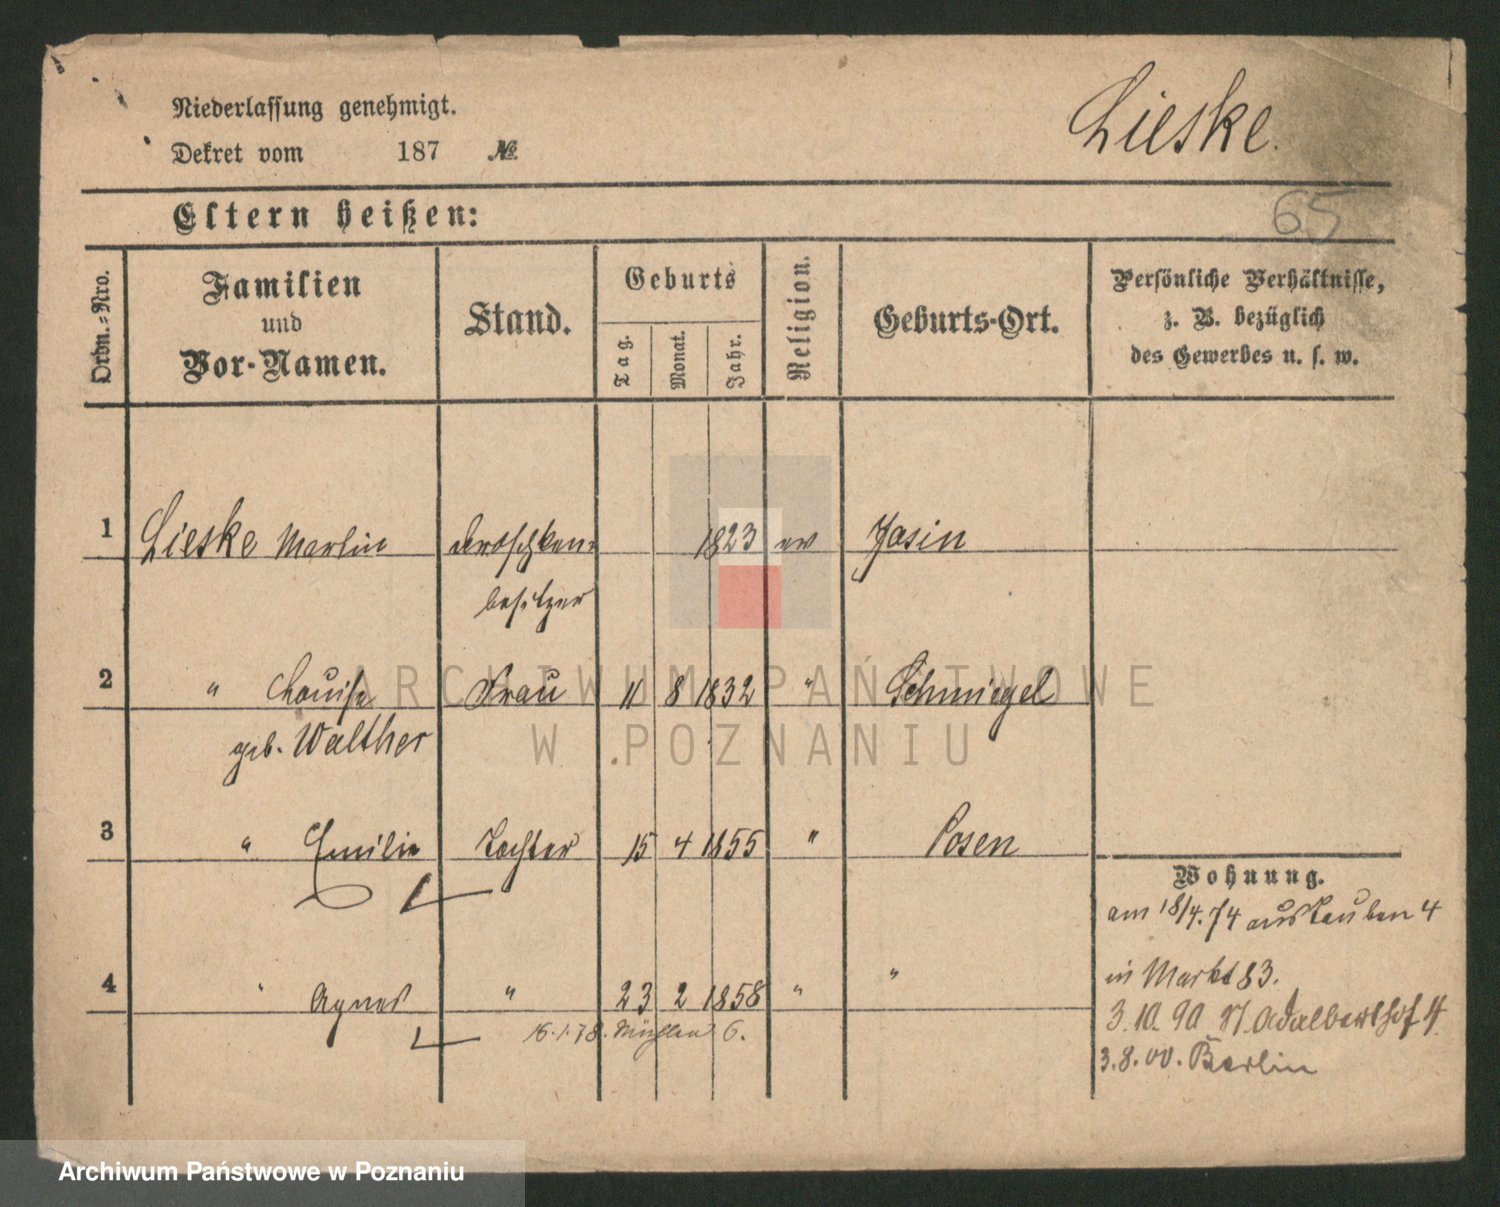 Niederlassung genehmigt.
Dekret vom 187 №
Lieske.
65
Eltern heißen:
Ordn.-Nro.
Familien
und
Vor-Namen.
Stand.
Geburts
Tag.
Monat.
Jahr.
Religion.
Geburts-Ort.
Persönliche Verhältnisse,
z. B. bezüglich
des Gewerbes u. s. w.
1 Lieske Martin Droschken= 1823 ev Jasin
besitzer
2 " Louise Frau 11 8 1832 " Schmiegel
geb. Walther
3 " Emilie Tochter 15 4 1855 " Posen
4 " Agnes " 23 2 1858 " "
16.1.78. Mühlen 6.
Wohnung.
am 18/4.74 aus Tauben 4
in Markt 83.
3.10.90 Adalbertshof 4
3.8.00. Berlin
ARCHIWUM PAŃSTWOWE
W POZNANIU
Archiwum Państwowe w Poznaniu